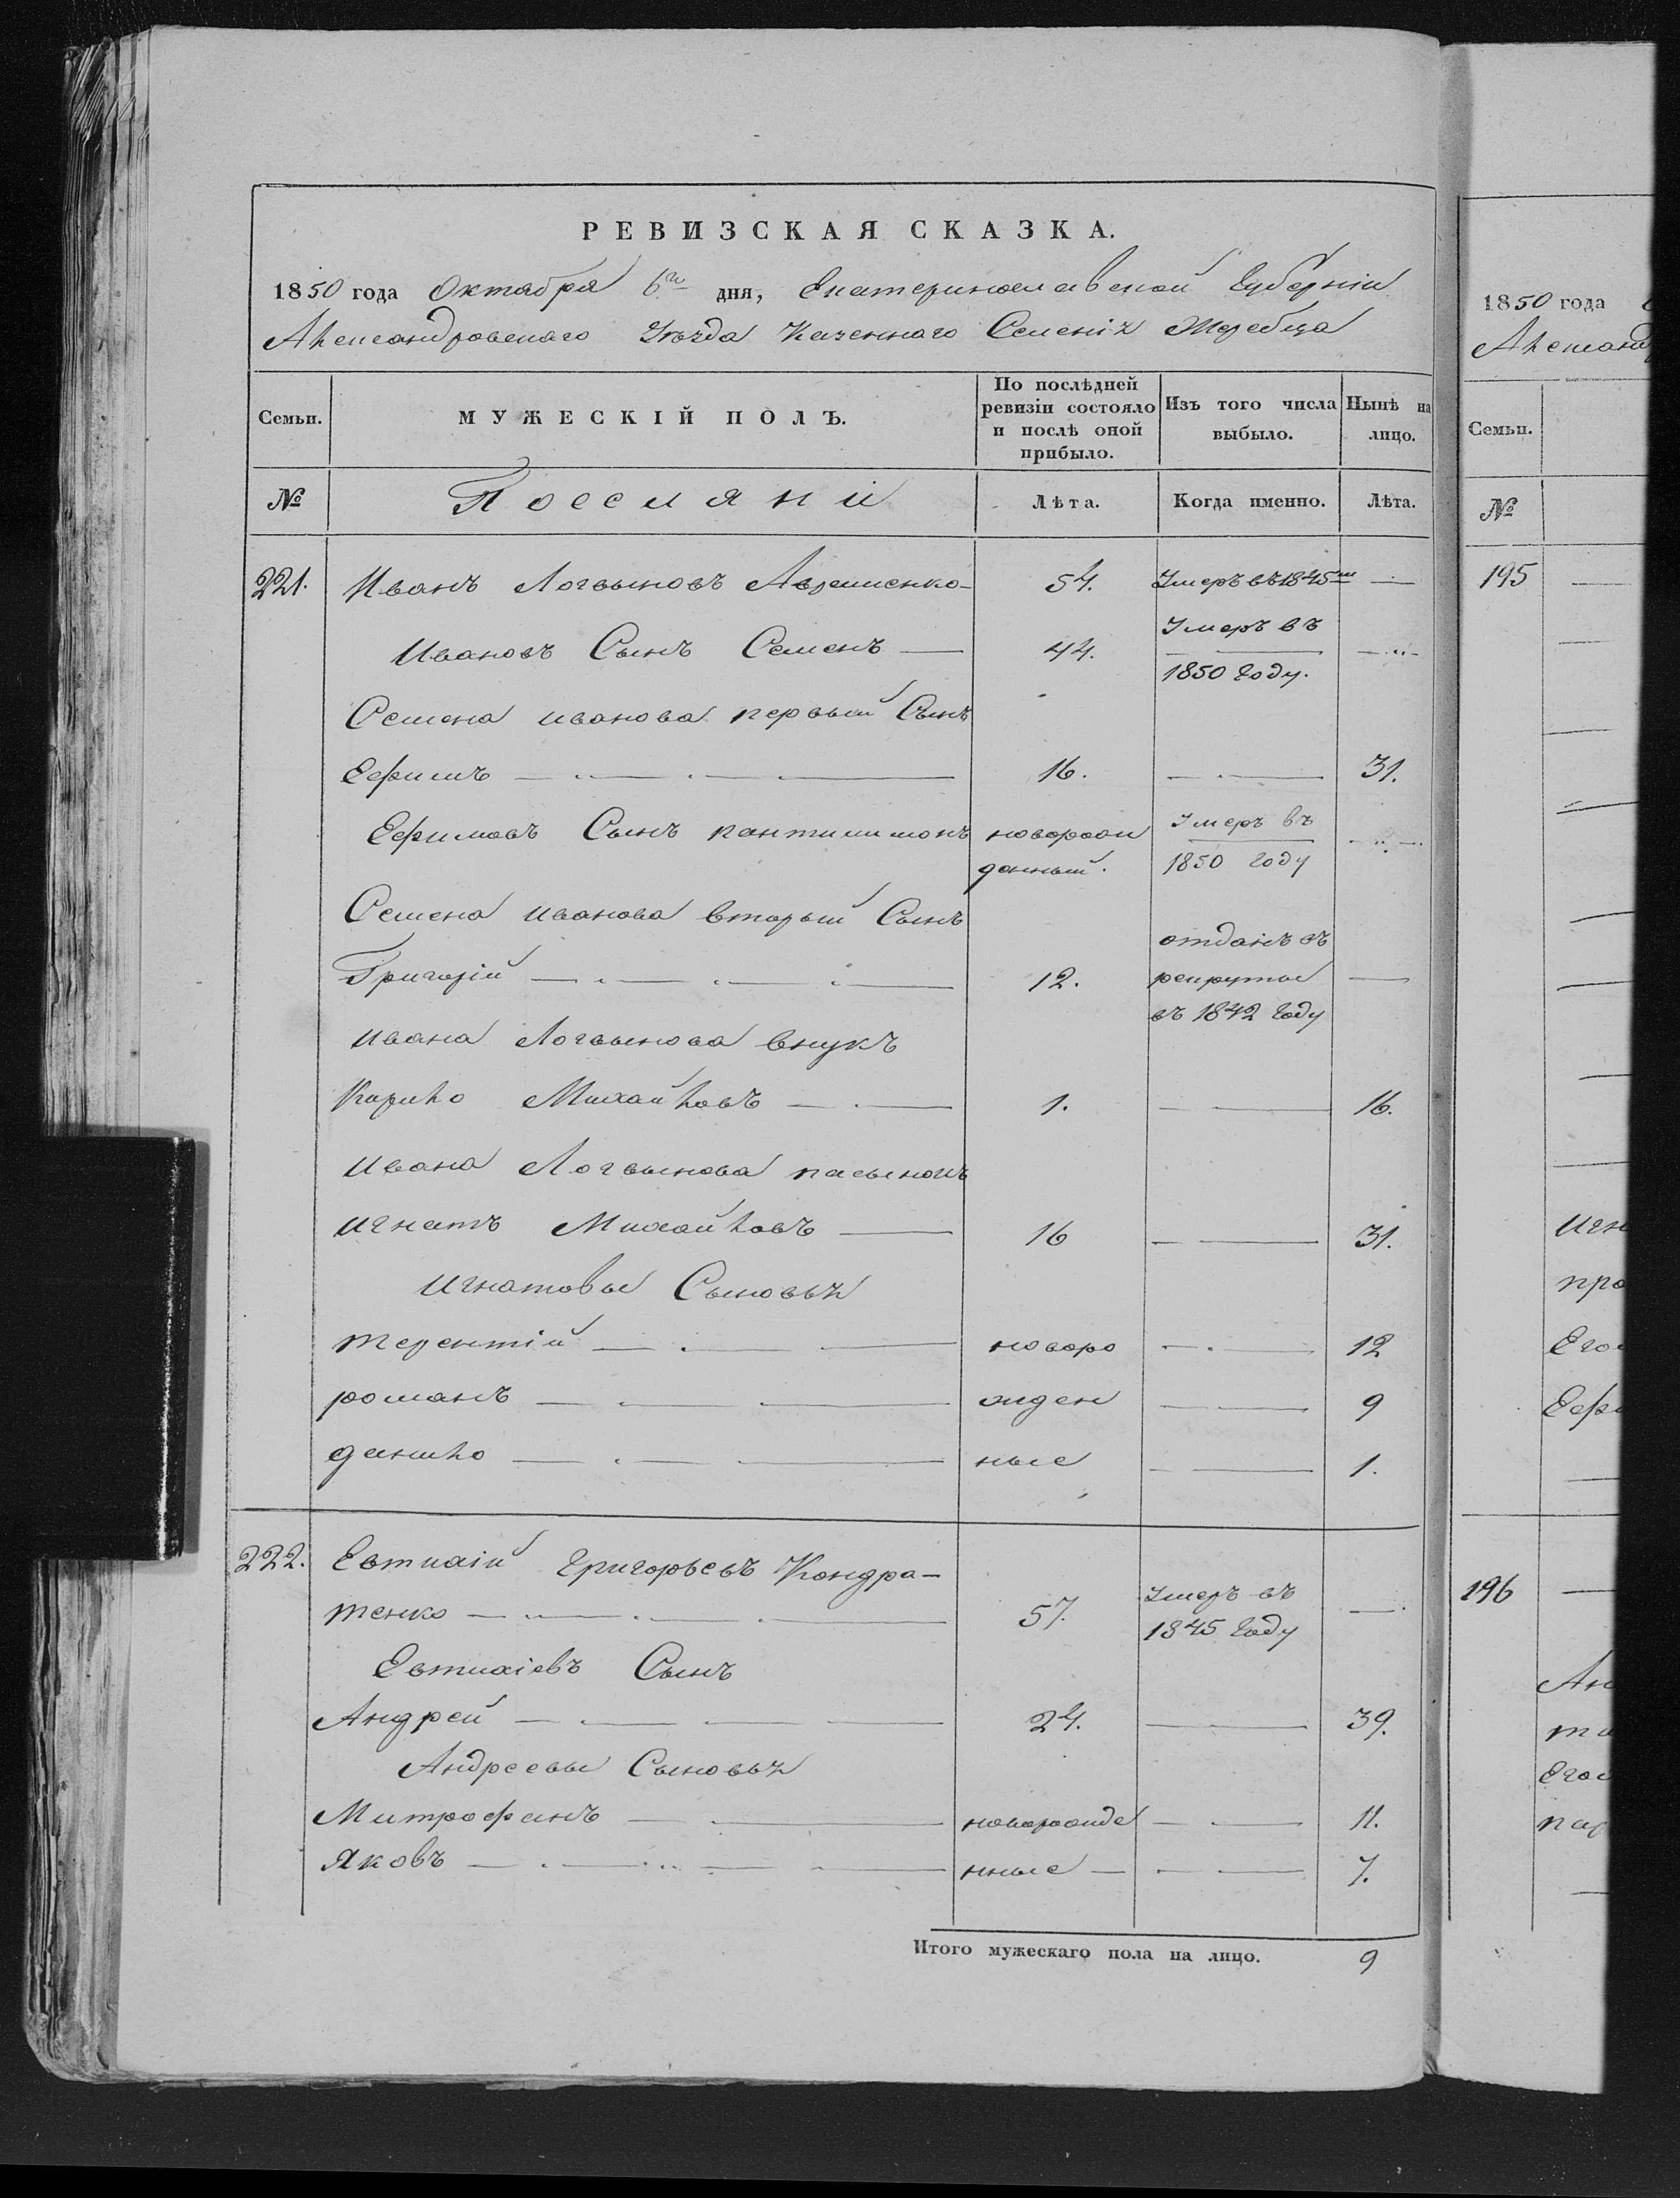 РЕВИЗСКАЯ СКАЗКА.
1850 года Октября 6го дня, Екатеринославской Губерніи
Александровскаго Уезда Казеннаго Селенія Жеребца
Семьи. МУЖЕСКІЙ ПОЛЪ. По послѣдней ревизіи состояло и послѣ оной прибыло. Изъ того числа выбыло. Нынѣ на лицо.
№ Поселяни Лѣта. Когда именно. Лѣта.
221. Иванъ Логвыновъ Авраменко 54. Умеръ въ 1845м —
Ивановъ Сынъ Семенъ — 44. Умеръ въ 1850 Году. —
Семена иванова первый Сынъ
Ефимъ — 16. — 31.
Ефимовъ Сынъ пантилимонъ новорожданный. Умеръ въ 1850 году —
Семена иванова вторый Сынъ
Григорій — 12. отданъ въ рекруты въ 1842 Году —
ивана Логвынова внукъ
Кирило Михайловъ — 1. — 16.
ивана Логвынова пасынокъ
игнатъ Михайловъ — 16 — 31.
игнатовы Сыновья
терентій — новоро — 12
романъ — жден — 9
данило — ные — 1.
222. Евтихій Григорьевъ Кондра-
тенко — 57. Умеръ въ 1845 Году —
Евтихіевъ Сынъ
Андрей — 24. — 39.
Андреевы Сыновья
Митрофанъ — новорожде — 11.
Яковъ — нные — 7.
Итого мужескаго пола на лицо. 9
1850 года
Александ
Семьи.
№
195
Игн
про
Его
Ефи
196
Ан
Его